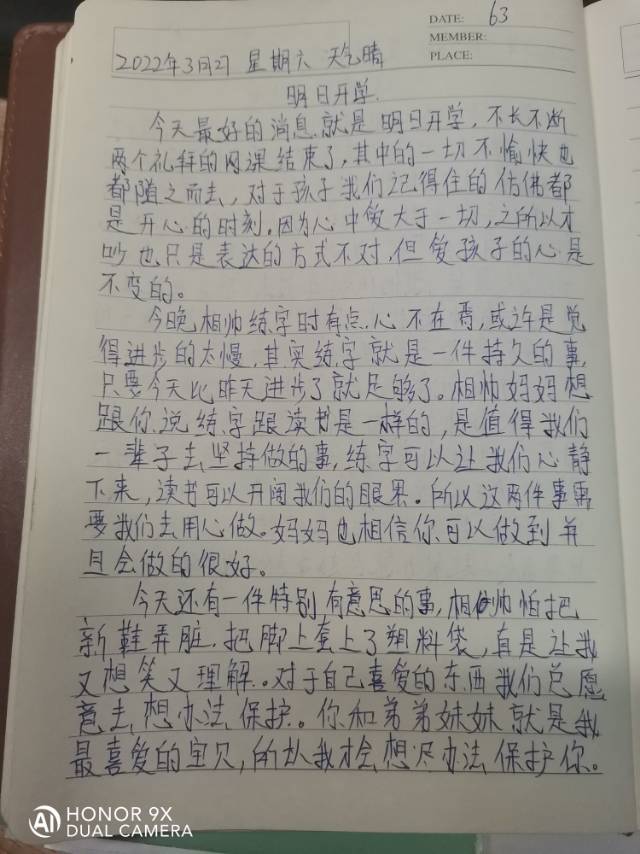 DATE: 63
MEMBER:
PLACE:
2022年3月27 星期六 天气晴
明日开学.
今天最好的消息就是明日开学，不长不断
两个礼拜的网课结束了，其中的一切不愉快也
都随之而去，对于孩子我们记得住的仿佛都
是开心的时刻.因为心中爱大于一切，之所以才
吵也只是表达的方式不对，但爱孩子的心是
不变的。
今晚相帅练字时有点心不在焉，或许是觉
得进步的太慢，其实练字就是一件持久的事，
只要今天比昨天进步了就足够了。相帅妈妈想
跟你说练字跟读书是一样的，是值得我们
一辈子去坚持做的事，练字可以让我们心静
下来，读书可以开阔我们的眼界。所以这两件事需
要我们去用心做。妈妈也相信你可以做到并
且会做的很好。
今天还有一件特别有意思的事，相帅怕把
新鞋弄脏，把脚上套上了塑料袋，真是让我
又想笑又理解。对于自己喜爱的东西我们总愿
意去想办法保护。你和弟弟妹妹就是我
最喜爱的宝贝，所以我才会想尽办法保护你。
HONOR 9X
DUAL CAMERA